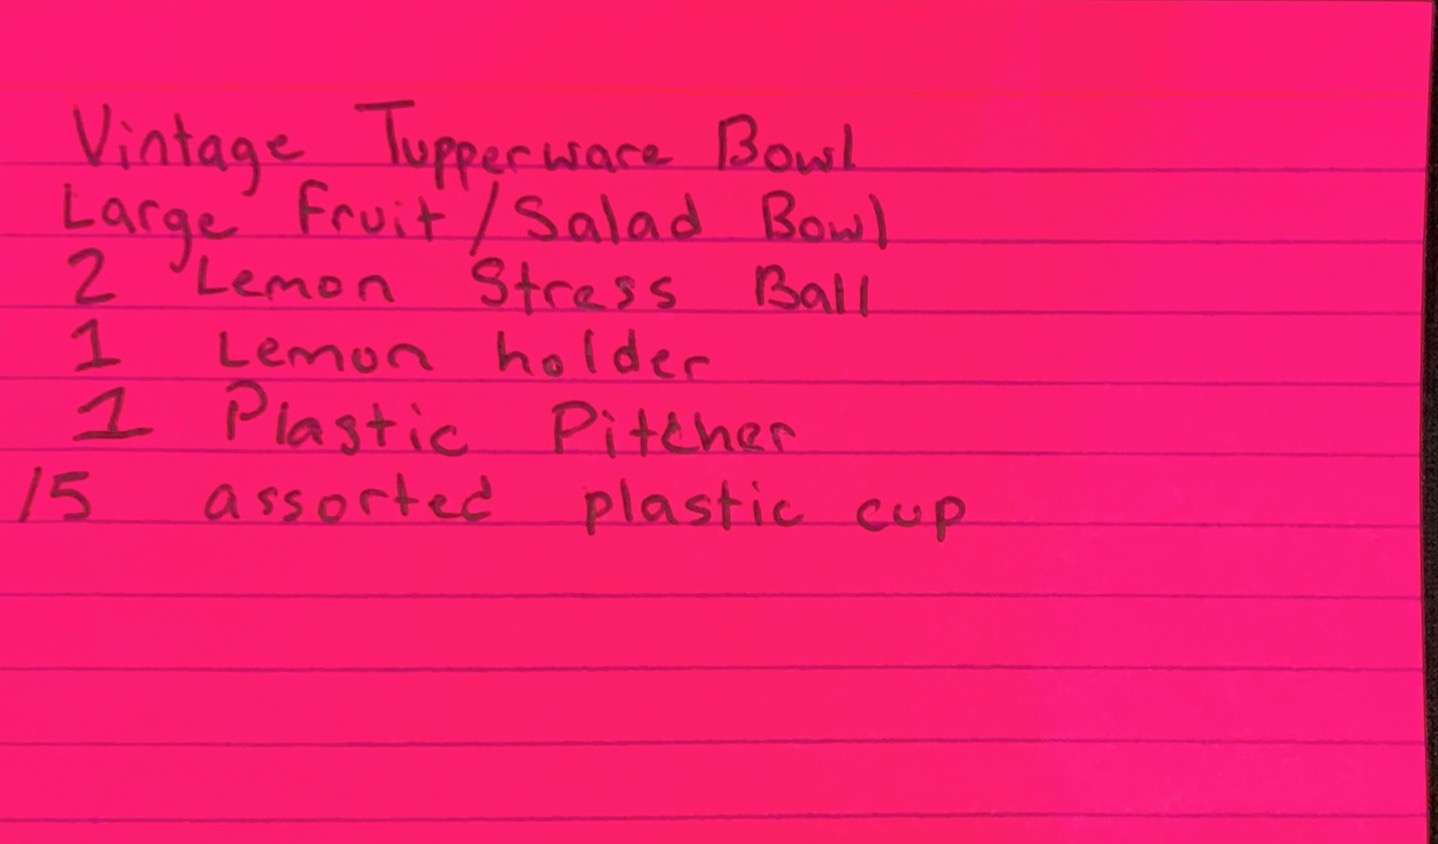 Vintage Tupperware Bowl
Large Fruit/Salad Bowl
2 Lemon Stress Ball
1 Lemon holder
1 Plastic Pitcher
15 assorted plastic cup